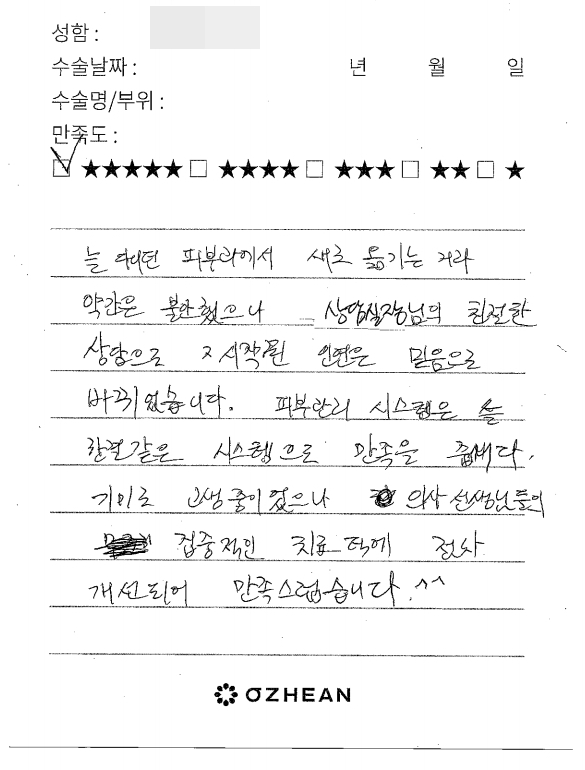 성함 :
수술날짜 : 년 월 일
수술명/부위 :
만족도 :
☑ ★★★★★ □ ★★★★ □ ★★★ □ ★★ □ ★
늘 다니던 피부과에서 새로 옮기는 거라
약간은 불안했으나 상담실장님의 친절한
상담으로 시작된 인연은 믿음으로
바뀌었습니다. 피부관리 시스템은 늘
한결같은 시스템으로 만족을 줍니다.
기미로 고생중이었으나 의사선생님들의
집중적인 치료 덕에 점차
개선되어 만족스럽습니다.^^
OZHEAN